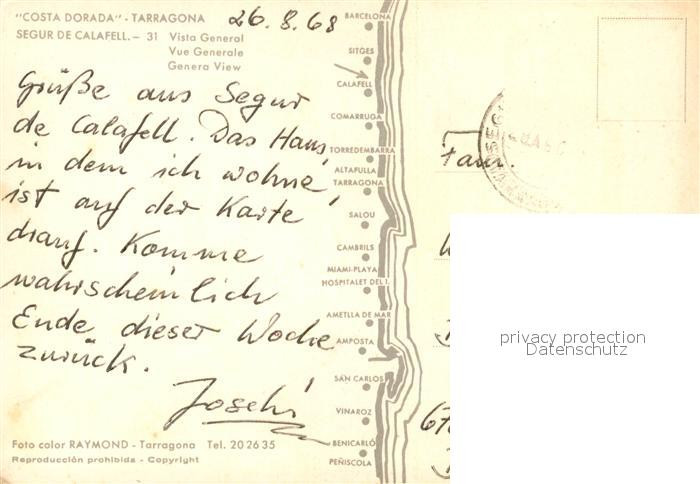 "COSTA DORADA" - TARRAGONA
26.8.68
SEGUR DE CALAFELL. - 31 Vista General
Vue Generale
Genera View
Grüße aus Segur
de Calafell. Das Haus,
in dem ich wohne,
ist auf der Karte
drauf. Komme
wahrscheinlich
Ende dieser Woche
zurück.
Joschi
Foto color RAYMOND - Tarragona Tel. 202635
Reproducción prohibida - Copyright
BARCELONA
SITGES
CALAFELL
COMARRUGA
TORREDEMBARRA
ALTAFULLA
TARRAGONA
SALOU
CAMBRILS
MIAMI-PLAYA
HOSPITALET DEL I.
AMETLLA DE MAR
AMPOSTA
SAN CARLOS
VINAROZ
BENICARLÓ
PEÑISCOLA
Fam.
privacy protection
Datenschutz